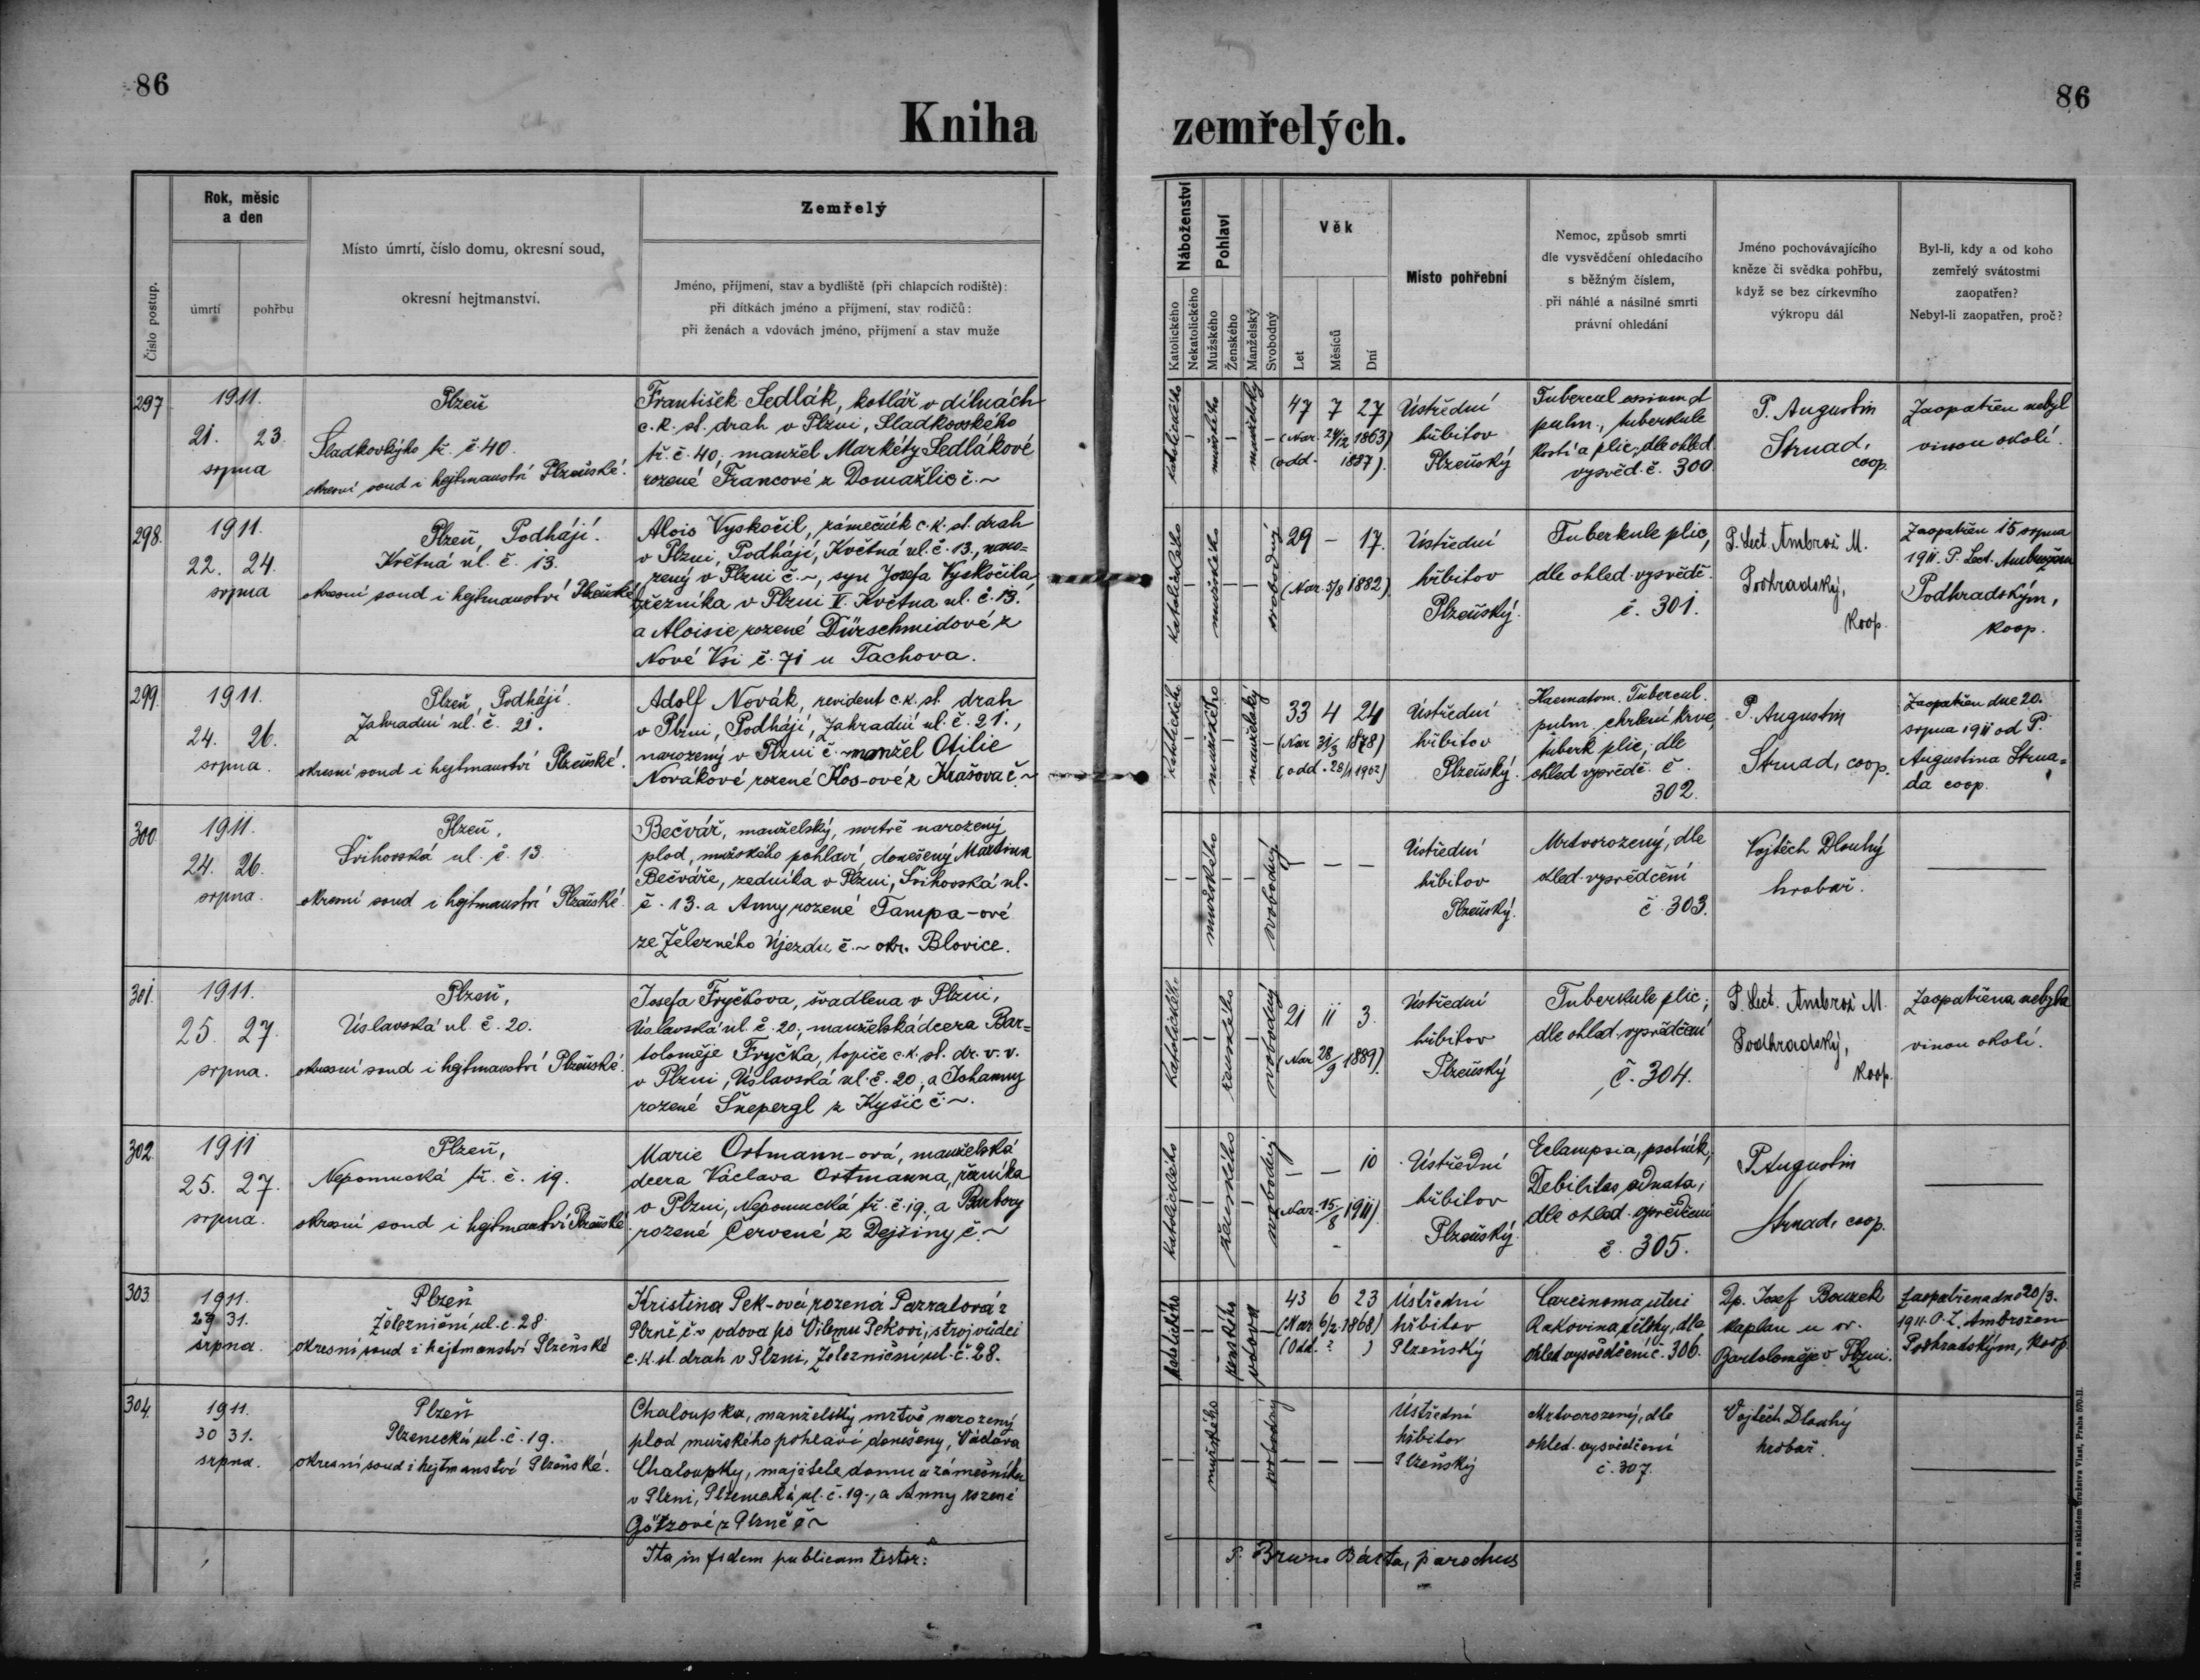 86
86
Kniha zemřelých.
Číslo postup.
Rok, měsíc
a den
úmrtí
pohřbu
Místo úmrtí, číslo domu, okresní soud,
okresní hejtmanství.
Zemřelý
Jméno, příjmení, stav a bydliště (při chlapcích rodiště):
při dítkách jméno a příjmení, stav rodičů:
při ženách a vdovách jméno, příjmení a stav muže
Náboženství
Katolického
Nekatolického
Pohlaví
Mužského
Ženského
Manželský
Svobodný
Věk
Let
Měsíců
Dní
Místo pohřební
Nemoc, způsob smrti
dle vysvědčení ohledacího
s běžným číslem,
při náhlé a násilné smrti
právní ohledání
Jméno pochovávajícího
kněze či svědka pohřbu,
když se bez církevního
výkropu dál
Byl-li, kdy a od koho
zemřelý svátostmi
zaopatřen?
Nebyl-li zaopatřen, proč?
297
1911.
21. 23.
srpna
Plzeň
Sladkovského tř. č. 40.
okresní soud i hejtmanství Plzeňské.
František Sedlák, kotlář v dílnách
c. k. st. drah v Plzni, Sladkovského
tř. č. 40, manžel Markéty Sedlákové
rozené Francové z Domažlic č. ~
katolického
mužského
manželský
47 7 27
(Nar. 24/12 1863)
(odd. 1887).
Ústřední
hřbitov
Plzeňský
Tubercul ossium et
pulm., tuberkule
kostí a plic, dle ohled.
vysvěd. č. 300
P. Augustin
Strnad,
coop.
Zaopatřen nebyl
vinou okolí.
298.
1911.
22. 24.
srpna
Plzeň, Podhájí.
Květná ul. č. 13.
okresní soud i hejtmanství Plzeňské
Alois Vyskočil, zámečník c. k. st. drah
v Plzni, Podhájí, Květná ul. č. 13., naro-
zený v Plzni č. ~, syn Josefa Vyskočila
řezníka v Plzni V. Května ul. č. 13.
a Aloisie rozené Dürschmidové z
Nové Vsi č. 71 u Tachova.
katolického
mužského
svobodný
29 — 17.
(Nar. 5/8 1882)
Ústřední
hřbitov
Plzeňský.
Tuberkule plic,
dle ohled. vysvědč.
č. 301.
P. Lect. Ambrož M.
Podhradský,
koop.
Zaopatřen 15 srpna
1911. P. Lect. Ambrožem
Podhradským,
koop.
299.
1911.
24. 26.
srpna.
Plzeň, Podhájí.
Zahradní ul. č. 21.
okresní soud i hejtmanství Plzeňské.
Adolf Novák, revident c. k. st. drah
v Plzni, Podhájí, Zahradní ul. č. 21.,
narozený v Plzni č. ~ manžel Otilie
Novákové rozené Kos-ové z Krašova č. ~
katolického
mužského
manželský
33 4 24
(Nar 31/3 1878)
(odd. 28/1 1902)
Ústřední
hřbitov
Plzeňský.
Haematom. Tubercul.
pulm, chrlení krve,
tuberk plic, dle
ohled vysvědč. č.
302.
P. Augustin
Strnad, coop.
Zaopatřen dne 20.
srpna 1911 od P.
Augustina Strna-
da coop.
300.
1911.
24. 26.
srpna.
Plzeň,
Švihovská ul. č. 13.
okresní soud i hejtmanství Plzeňské.
Bečvář, manželský, mrtvě narozený
plod, mužského pohlaví, donešený Martina
Bečváře, zedníka v Plzni, Švihovská ul.
č. 13. a Anny rozené Tampa-ové
ze Železného Újezdu č. ~ okr. Blovice.
mužského
svobodný
— — —
Ústřední
hřbitov
Plzeňský.
Mrtvorozený, dle
ohled. vysvědčení
č. 303.
Vojtěch Dlouhý
hrobař.
301.
1911.
25. 27.
srpna.
Plzeň,
Úslavská ul. č. 20.
okresní soud i hejtmanství Plzeňské.
Josefa Fryčkova, švadlena v Plzni,
Úslavská ul. č. 20., manželská dcera Bar-
toloměje Fryčka, topiče c. k. st. dr. v. v.
v Plzni, Úslavská ul. č. 20, a Johanny
rozené Šnepergl z Kyšic č. ~.
katolického
ženského
svobodný
21 11 3.
(Nar 28/9 1889).
Ústřední
hřbitov
Plzeňský
Tuberkule plic;
dle ohled. vysvědčení
č. 304.
P. Lect. Ambrož M.
Podhradský,
koop.
Zaopatřena nebyla
vinou okolí.
302.
1911
25. 27.
srpna.
Plzeň,
Nepomucká tř. č. 19.
okresní soud i hejtmanství Plzeňské
Marie Ortmann-ová, manželská
dcera Václava Ortmanna, řezníka
v Plzni, Nepomucká tř. č. 19. a Barbory
rozené Červené z Dejšiny č. ~
katolického
ženského
svobodný
— — 10
(Nar. 15/8 1911).
Ústřední
hřbitov
Plzeňský.
Eclampsia, psotník,
Debilitas adnata,
dle ohled. vysvědčení
č. 305.
P. Augustin
Strnad, coop.
303.
1911.
29 31.
srpna.
Plzeň
Železniční ul. č. 28.
okresní soud i hejtmanství Plzeňské
Kristina Pek-ová rozená Pazratová z
Plzně č. ~ vdova po Vilému Pekovi, strojvůdci
c. k. st. drah v Plzni, Železniční ul. č. 28.
katolického
ženského
vdova
43 6 23
(Nar. 6/2 1868)
(Odd. ? )
Ústřední
hřbitov
Plzeňský
Carcinoma uteri
Rakovina dělohy, dle
ohled vysvědčení č. 306.
Dp. Josef Bouzek
kaplan u sv.
Bartoloměje v Plzni.
Zaopatřena dne 20/3.
1911. P. L. Ambrožem
Podhradským, koop.
304.
1911.
30 31.
srpna.
Plzeň
Plzenecká ul. č. 19.
okresní soud i hejtmanství Plzeňské.
Chaloupka, manželský mrtvě narozený
plod mužského pohlaví donešený, Václava
Chaloupky, majitele domu a zámečníka
v Plzni, Plzenecká ul. č. 19., a Anny rozené
Götzové z Plzně č ~
mužského
svobodný
— — —
Ústřední
hřbitov
Plzeňský
Mrtvorozený, dle
ohled. vysvědčení
č. 307.
Vojtěch Dlouhý
hrobař.
Ita in fidem publicam testor:
P. Bruno Bárta, parochus
Tiskem a nákladem družstva Vlast, Praha 570-II.